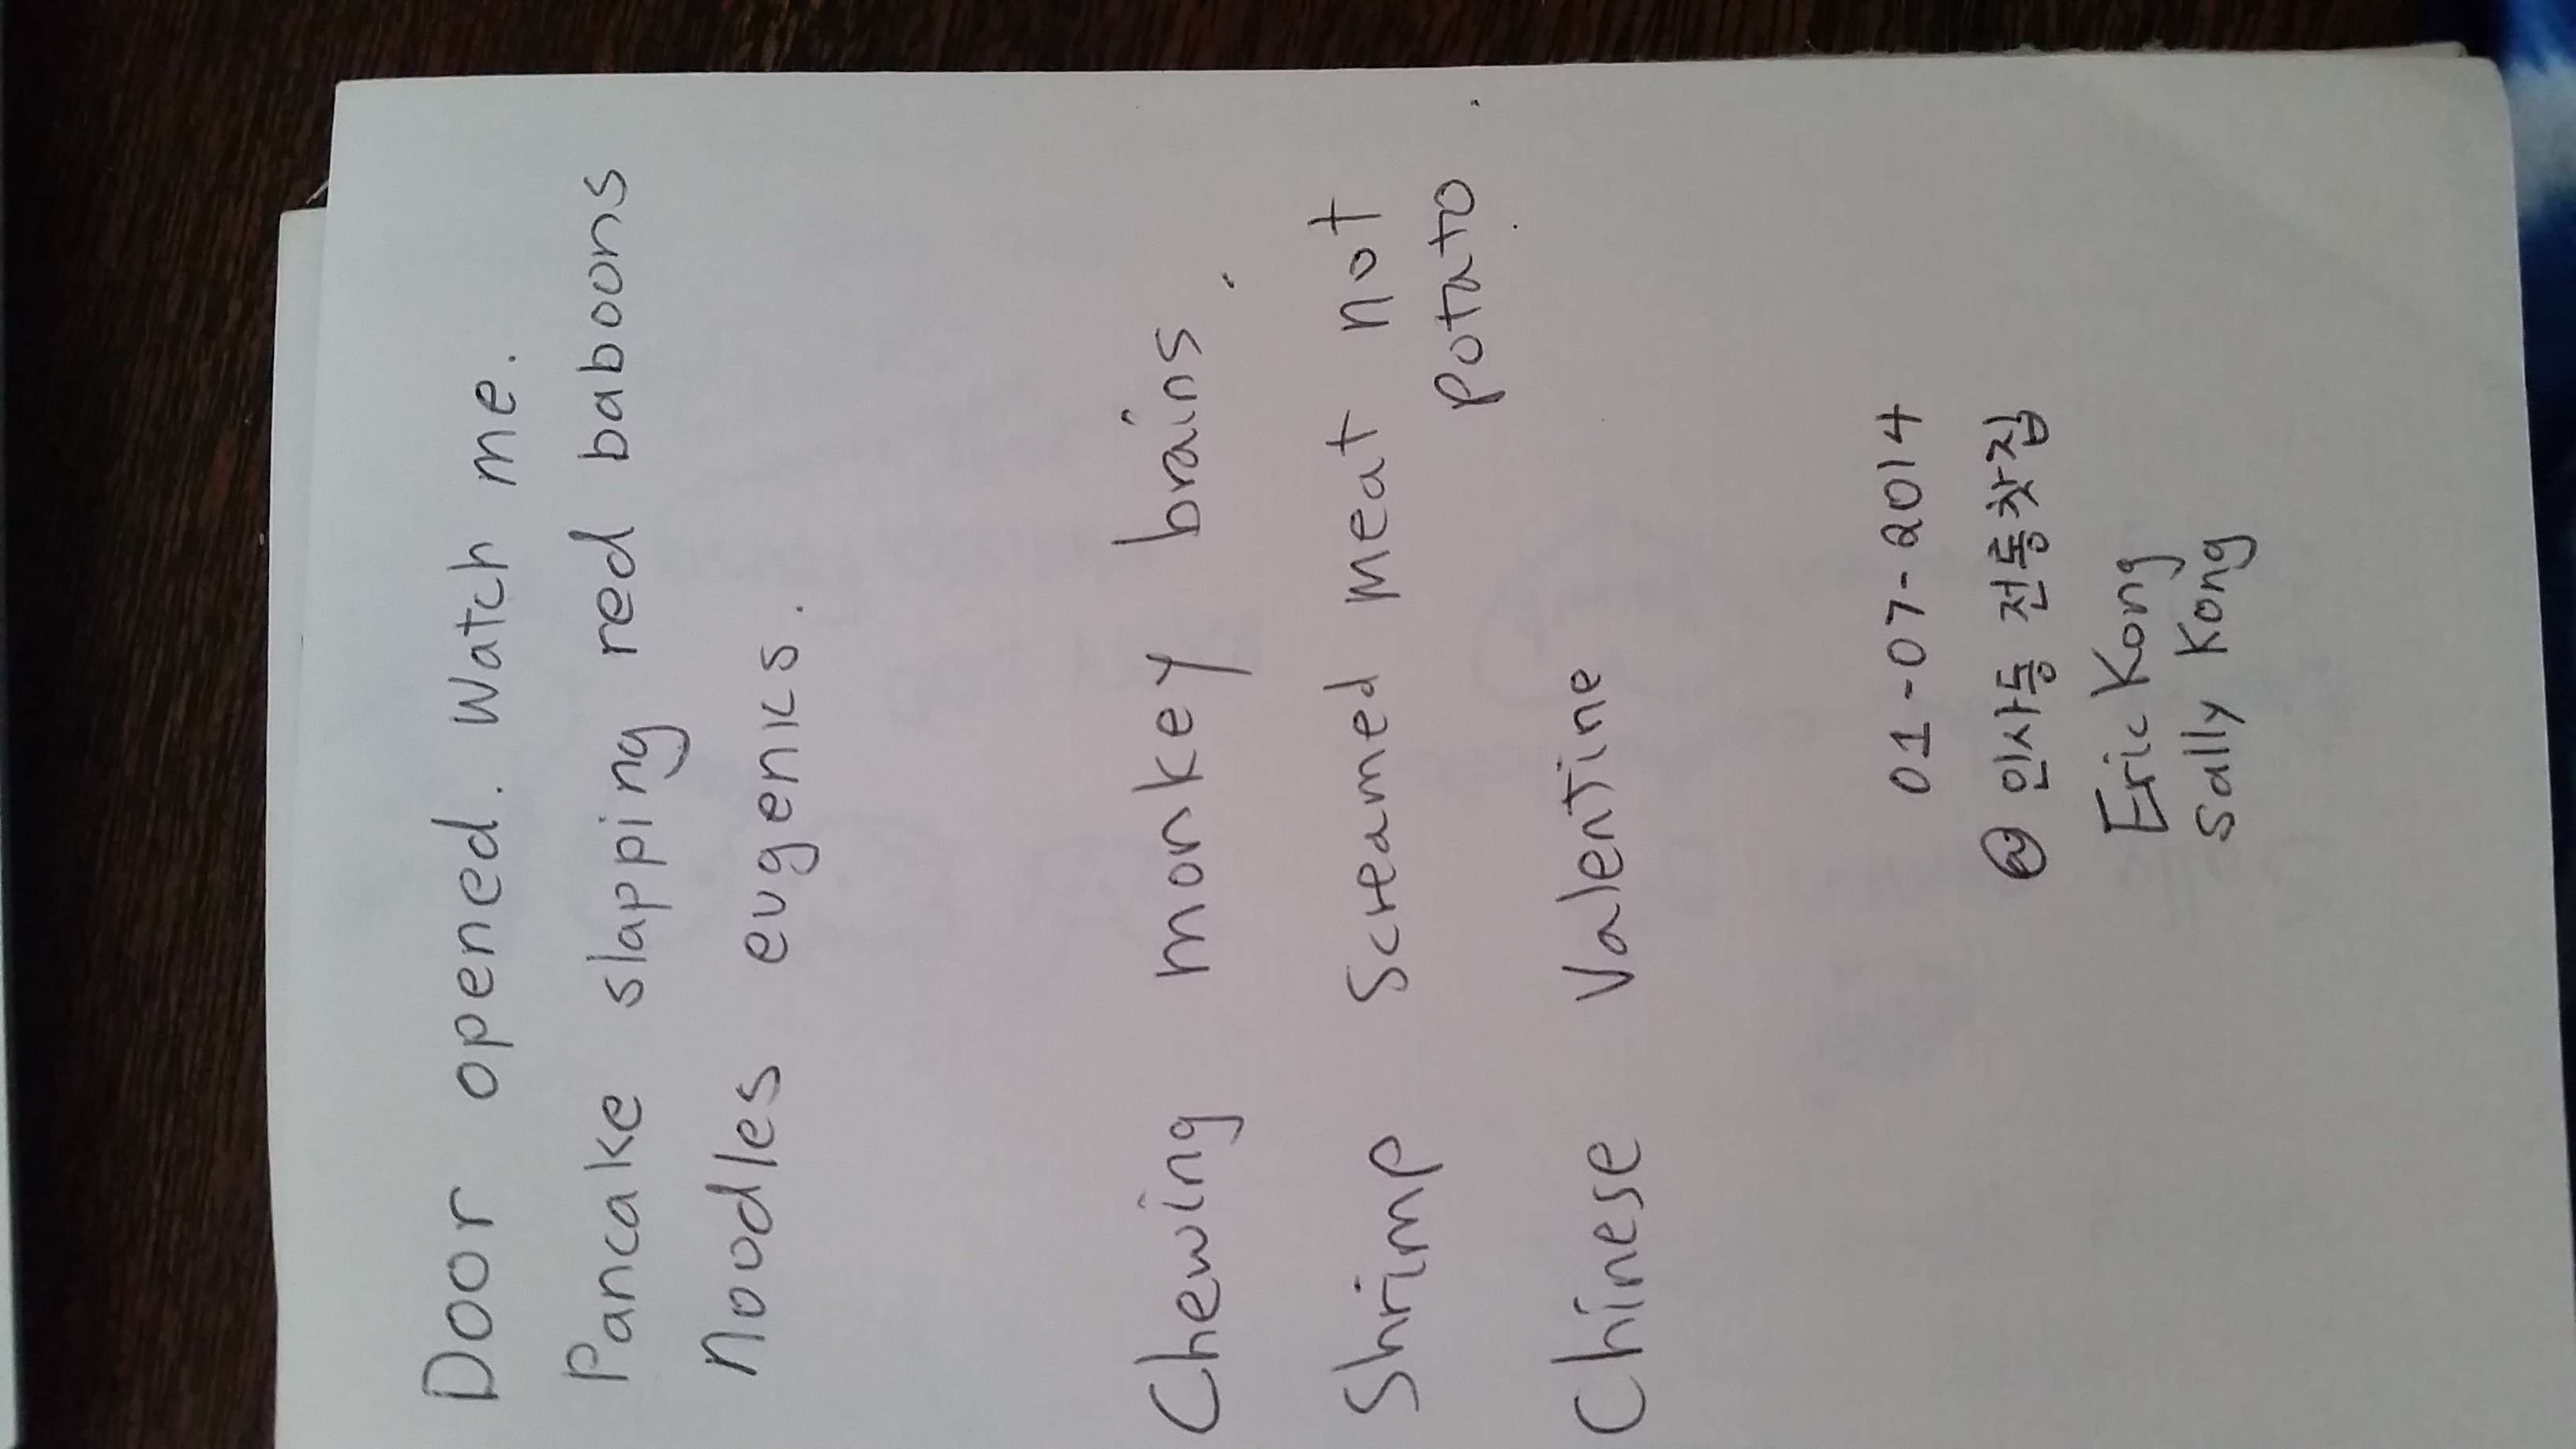 Door opened. Watch me.
Pancake slapping red baboons
Noodles eugenics.
Chewing monkey brains.
Shrimp screamed meat not
potato.
Chinese Valentine
01-07-2014
@ 인사동 전통찻집
Eric Kong
Sally Kong